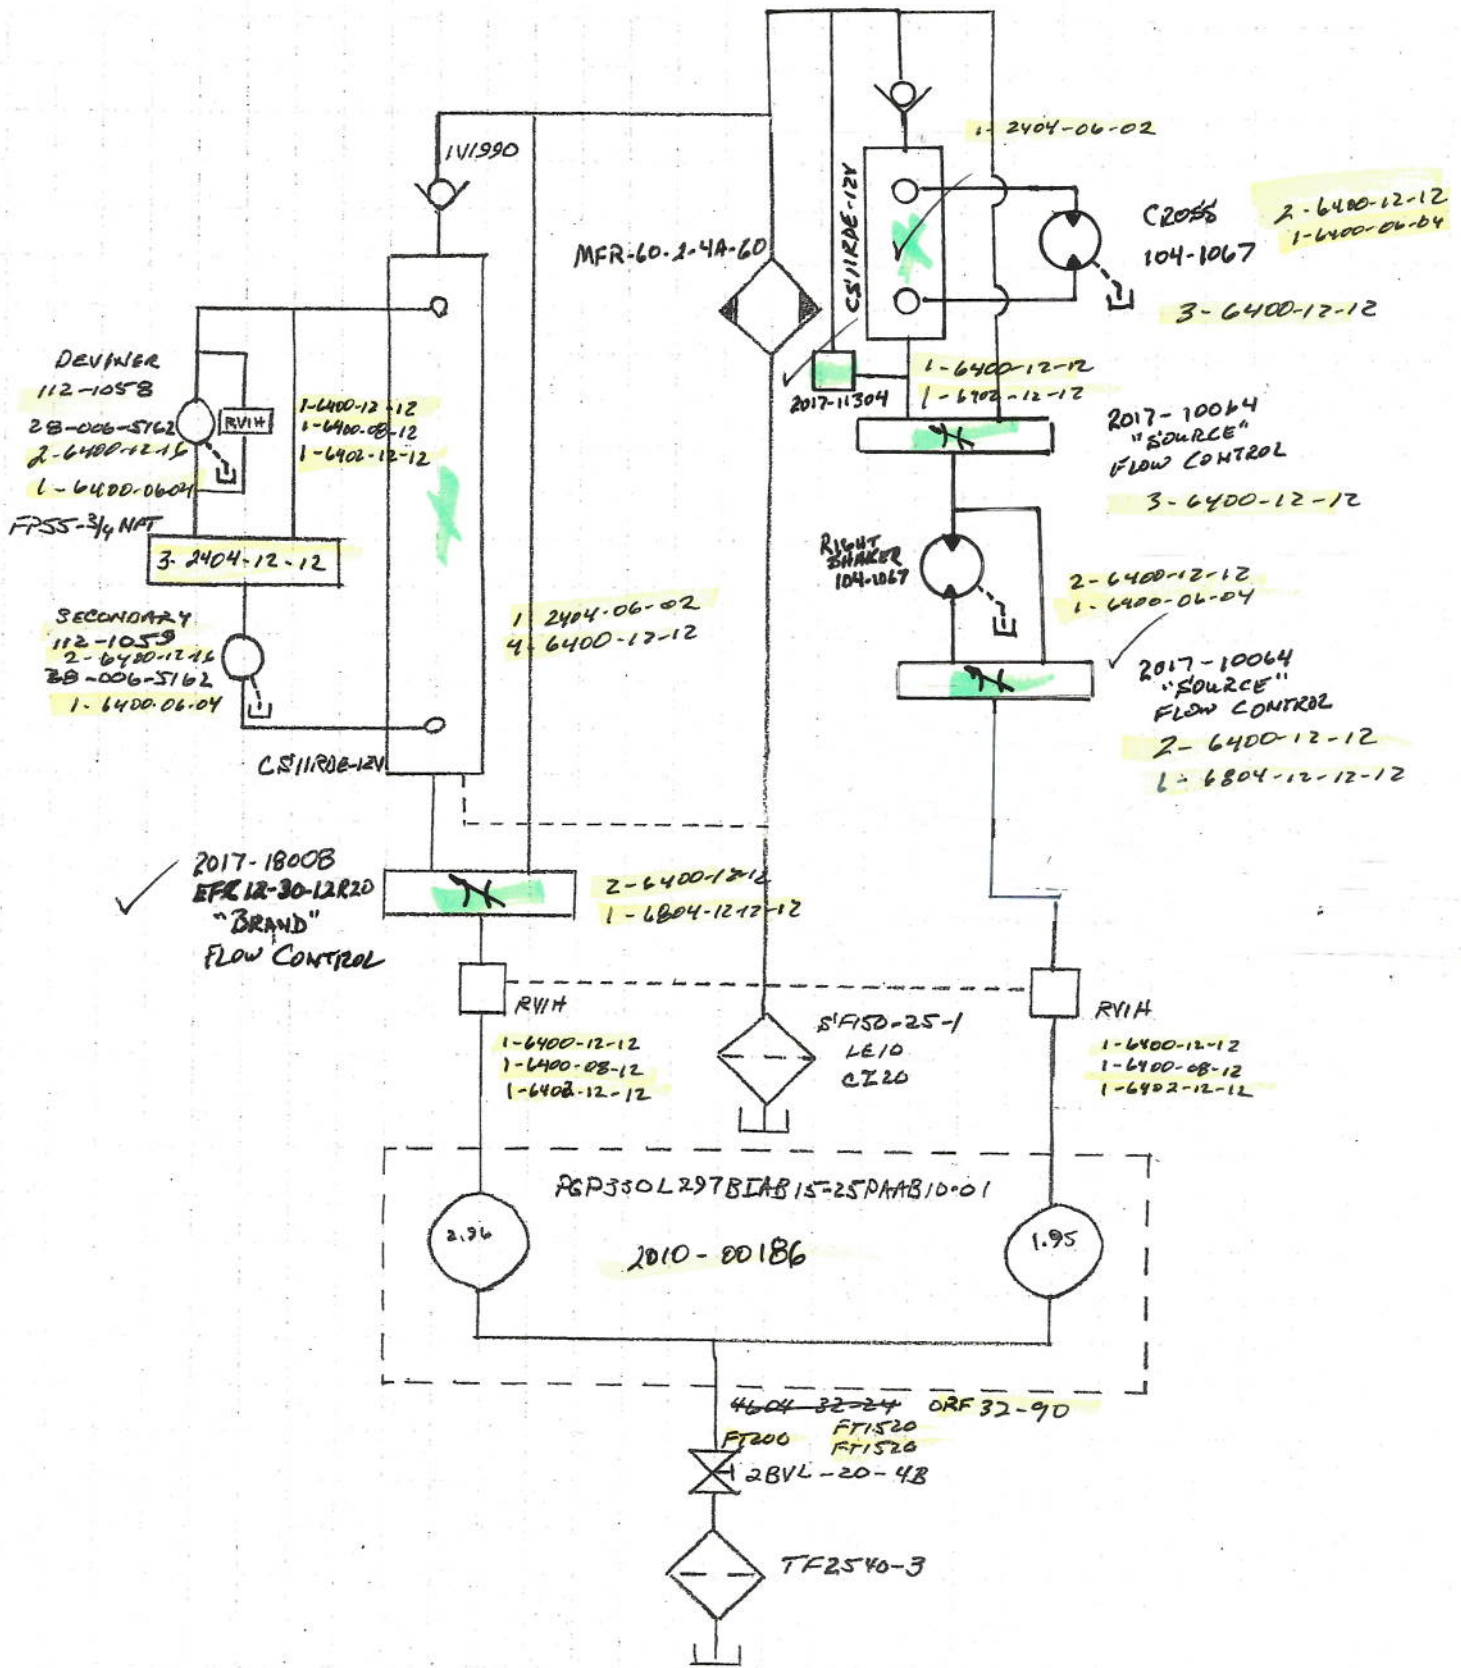 1V1990
1-2404-06-02
CS11RDE-12V
MFR-60-2-4A-60
CROSS
104-1067
2-6400-12-12
1-6400-06-04
3-6400-12-12
DEVINER
112-1058
28-006-5162
2-6400-12-16
1-6400-0604
FP55-3/4 NPT
RV1H
1-6400-12-12
1-6400-08-12
1-6402-12-12
3-2404-12-12
2017-11304
1-6400-12-12
1-6702-12-12
2017-10064
"SOURCE"
FLOW CONTROL
3-6400-12-12
RIGHT
SHAKER
104-1067
2-6400-12-12
1-6400-06-04
SECONDARY
112-1059
2-6400-12-16
28-006-5162
1-6400-06-04
1 2404-06-02
4-6400-12-12
2017-10064
"SOURCE"
FLOW CONTROL
2-6400-12-12
1-6804-12-12-12
CS11RDE-12V
2017-18008
EFR12-30-12R20
"BRAND"
FLOW CONTROL
2-6400-12-12
1-6804-12-12-12
RV1H
1-6400-12-12
1-6400-08-12
1-6402-12-12
SF150-25-1
LE10
CI20
RV1H
1-6400-12-12
1-6400-08-12
1-6402-12-12
PGP350L297BIAB15-25PAAB10-01
2.96
2010-00186
1.95
4604-32-24 ORF 32-90
FT200 FT1520
FT1520
2BVL-20-4B
TF2540-3